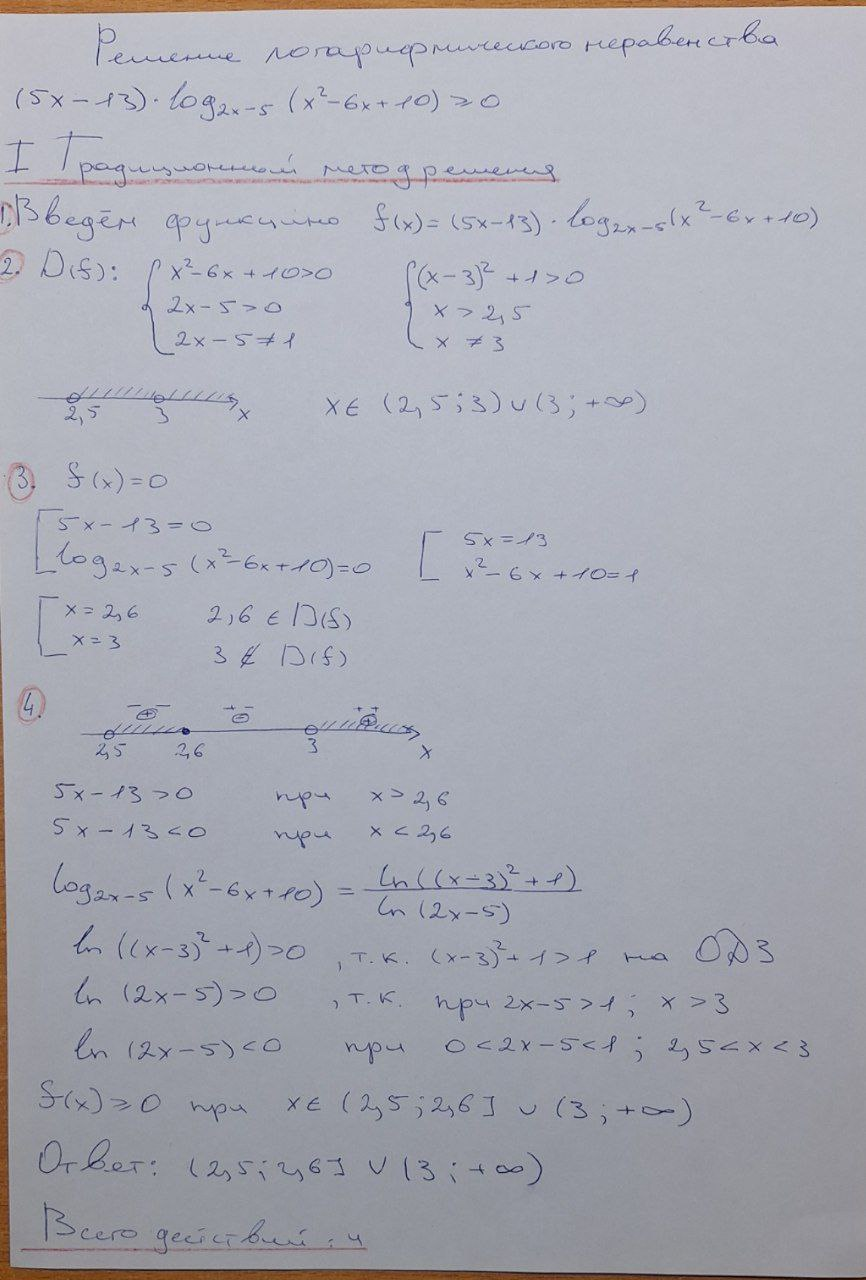 Решение логарифмического неравенства
(5x−13)·log₂ₓ₋₅ (x²−6x+10) ≥ 0
I Традиционный метод решения
1. Введём функцию f(x) = (5x−13)·log₂ₓ₋₅(x²−6x+10)
2. D(f): { x²−6x+10>0 { (x−3)²+1>0
2x−5>0 x > 2,5
2x−5≠1 x ≠ 3
2,5 3 x x∈ (2,5;3)∪(3;+∞)
3. f(x)=0
[ 5x−13=0 [ 5x=13
log₂ₓ₋₅ (x²−6x+10)=0 x²−6x+10=1
[ x=2,6 2,6 ∈ D(f)
x=3 3 ∉ D(f)
4. −− ⊕ +− ⊖ ++ ⊕
2,5 2,6 3 x
5x−13>0 при x>2,6
5x−13<0 при x<2,6
log₂ₓ₋₅ (x²−6x+10) = ln((x−3)²+1) / ln(2x−5)
ln((x−3)²+1)>0 , т.к. (x−3)²+1>1 на ОДЗ
ln (2x−5)>0 , т.к. при 2x−5>1; x>3
ln (2x−5)<0 при 0<2x−5<1; 2,5<x<3
f(x)≥0 при x∈ (2,5;2,6] ∪ (3;+∞)
Ответ: (2,5;2,6] ∪ (3;+∞)
Всего действий: 4